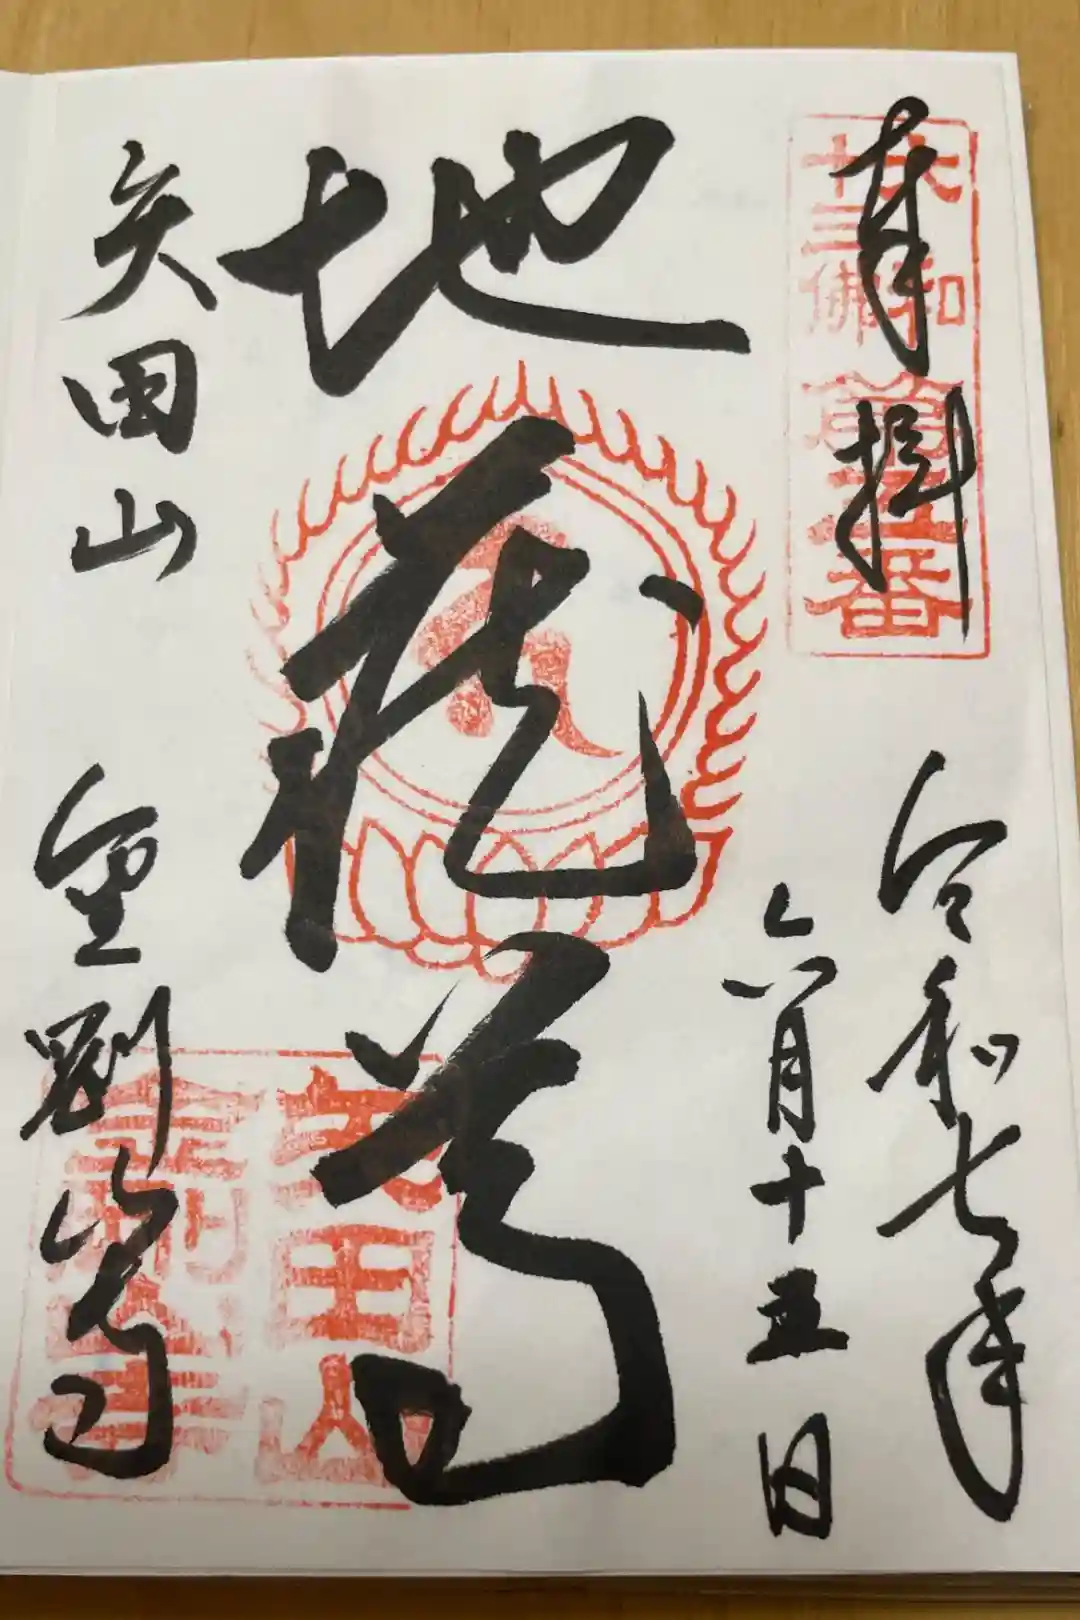 奉拝
大和
十三佛
第五番
令和七年
六月十五日
地蔵尊
矢田山
金剛山寺
矢田山
金剛山寺